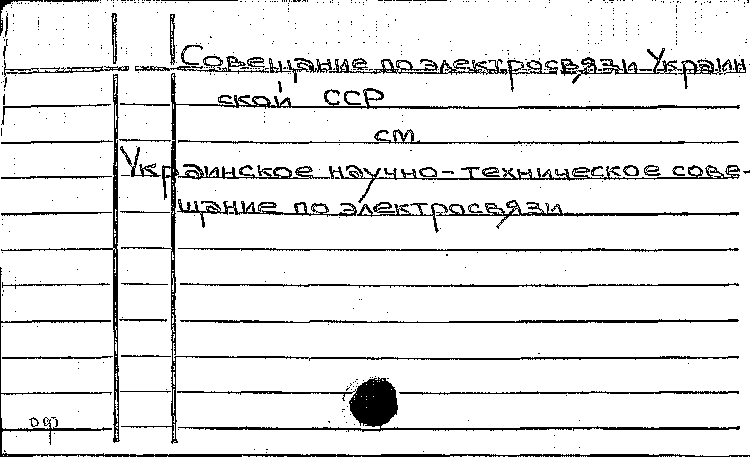 Совещание по электросвязи Украин-
ской ССР
см.
Украинское научно-техническое сове-
щание по электросвязи